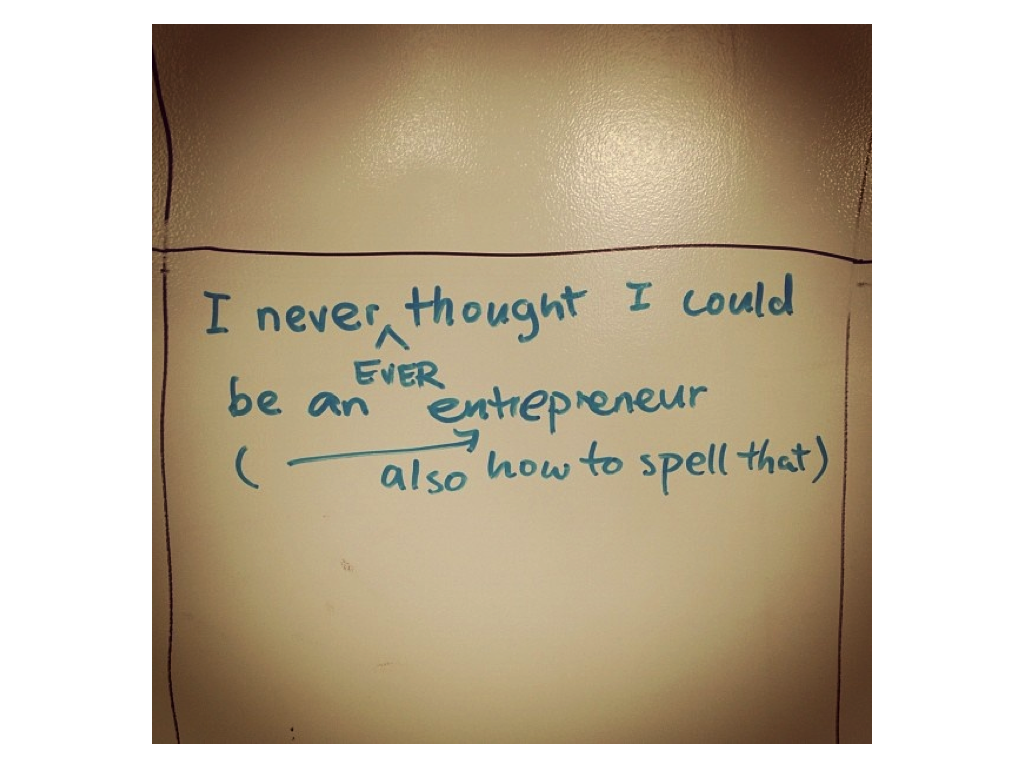 I never thought I could
EVER
be an entrepreneur
( also how to spell that)